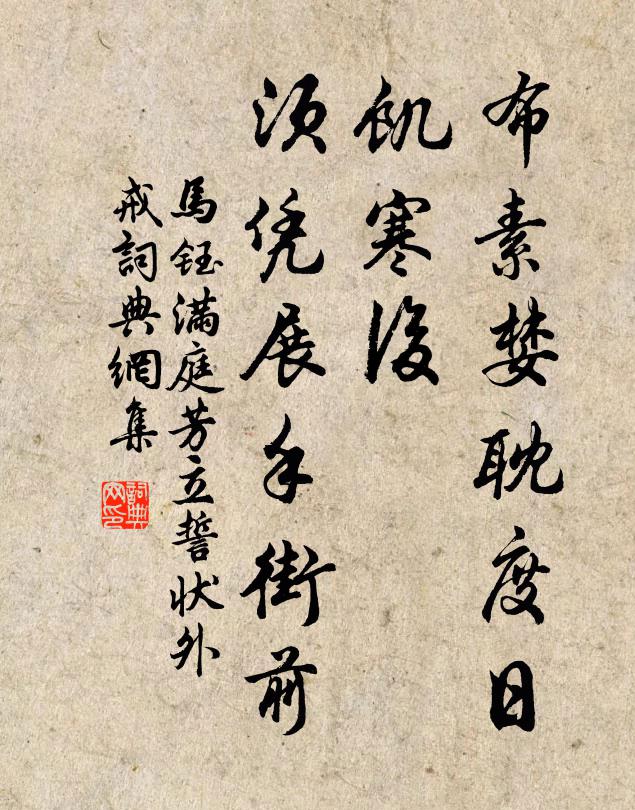 布素婪耽度日
飢寒後
須凭展手街前
馬鈺滿庭芳立誓状外
戒詞典網集
詞典
网印